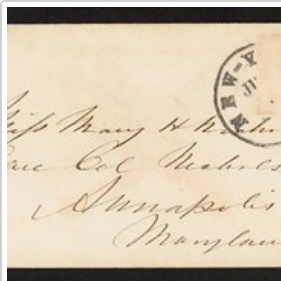 NEW-Y
JU
Miss Mary H Nichols
Care Col Nichols
Annapolis
Maryland